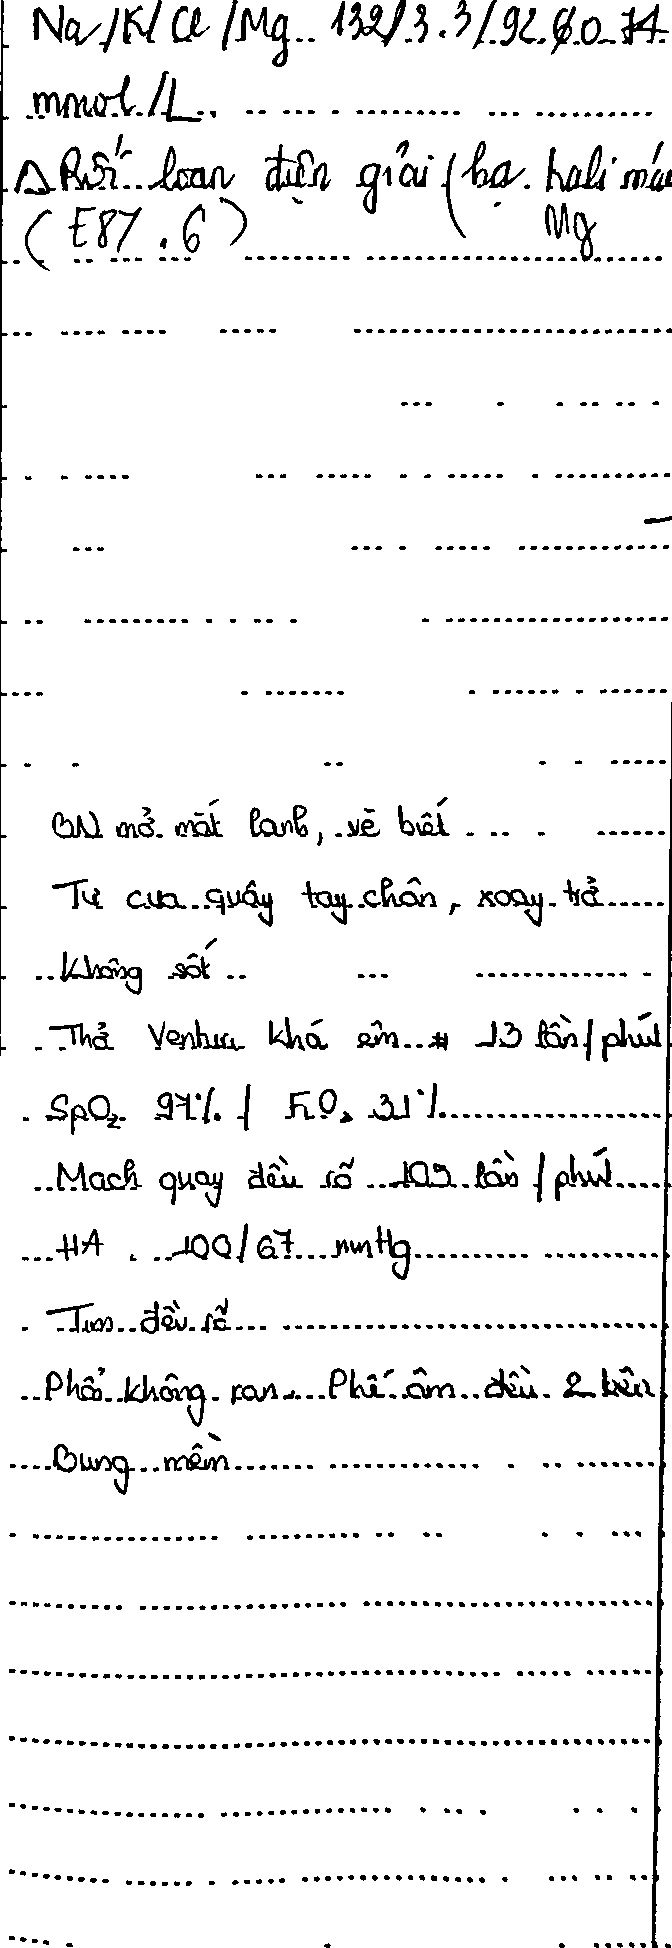 Na/K/Cl/Mg 132/3.3/92.6/0.74
mmol/L
Δ Rối loạn điện giải (hạ kali máu
(E87.6) Mg
BN mở mắt lanh, vẻ biết
Tự cựa quậy tay chân, xoay trở
Không sốt
Thở Venturi khá êm # 13 lần/phút
SpO2 97% / FiO2 31%
Mạch quay đều rõ 109 lần/phút
HA 100/67 mmHg
Tim đều rõ
Phổi không ran Phế âm đều 2 bên
Bụng mềm